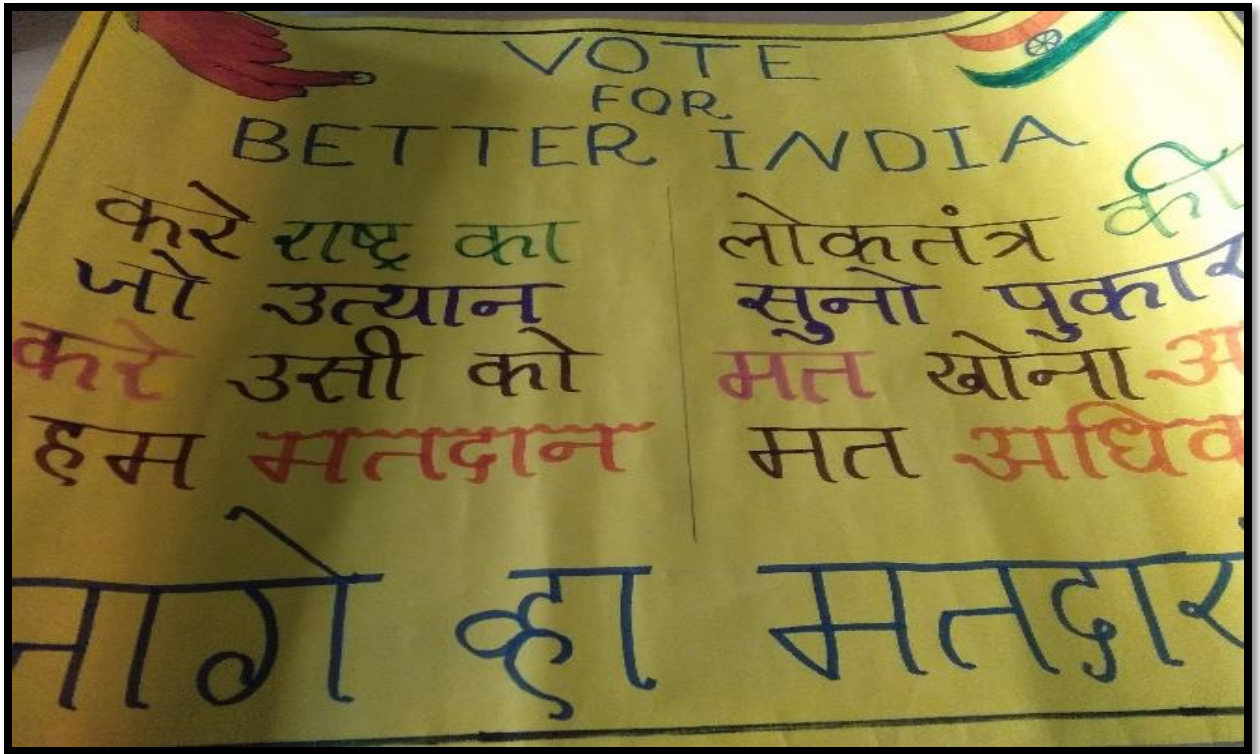 VOTE
FOR
BETTER INDIA
करे राष्ट्र का
जो उत्यान
करे उसी को
हम मतदान
लोकतंत्र की
सुनो पुकार
मत खोना
मत
जागे व्हा मतदार